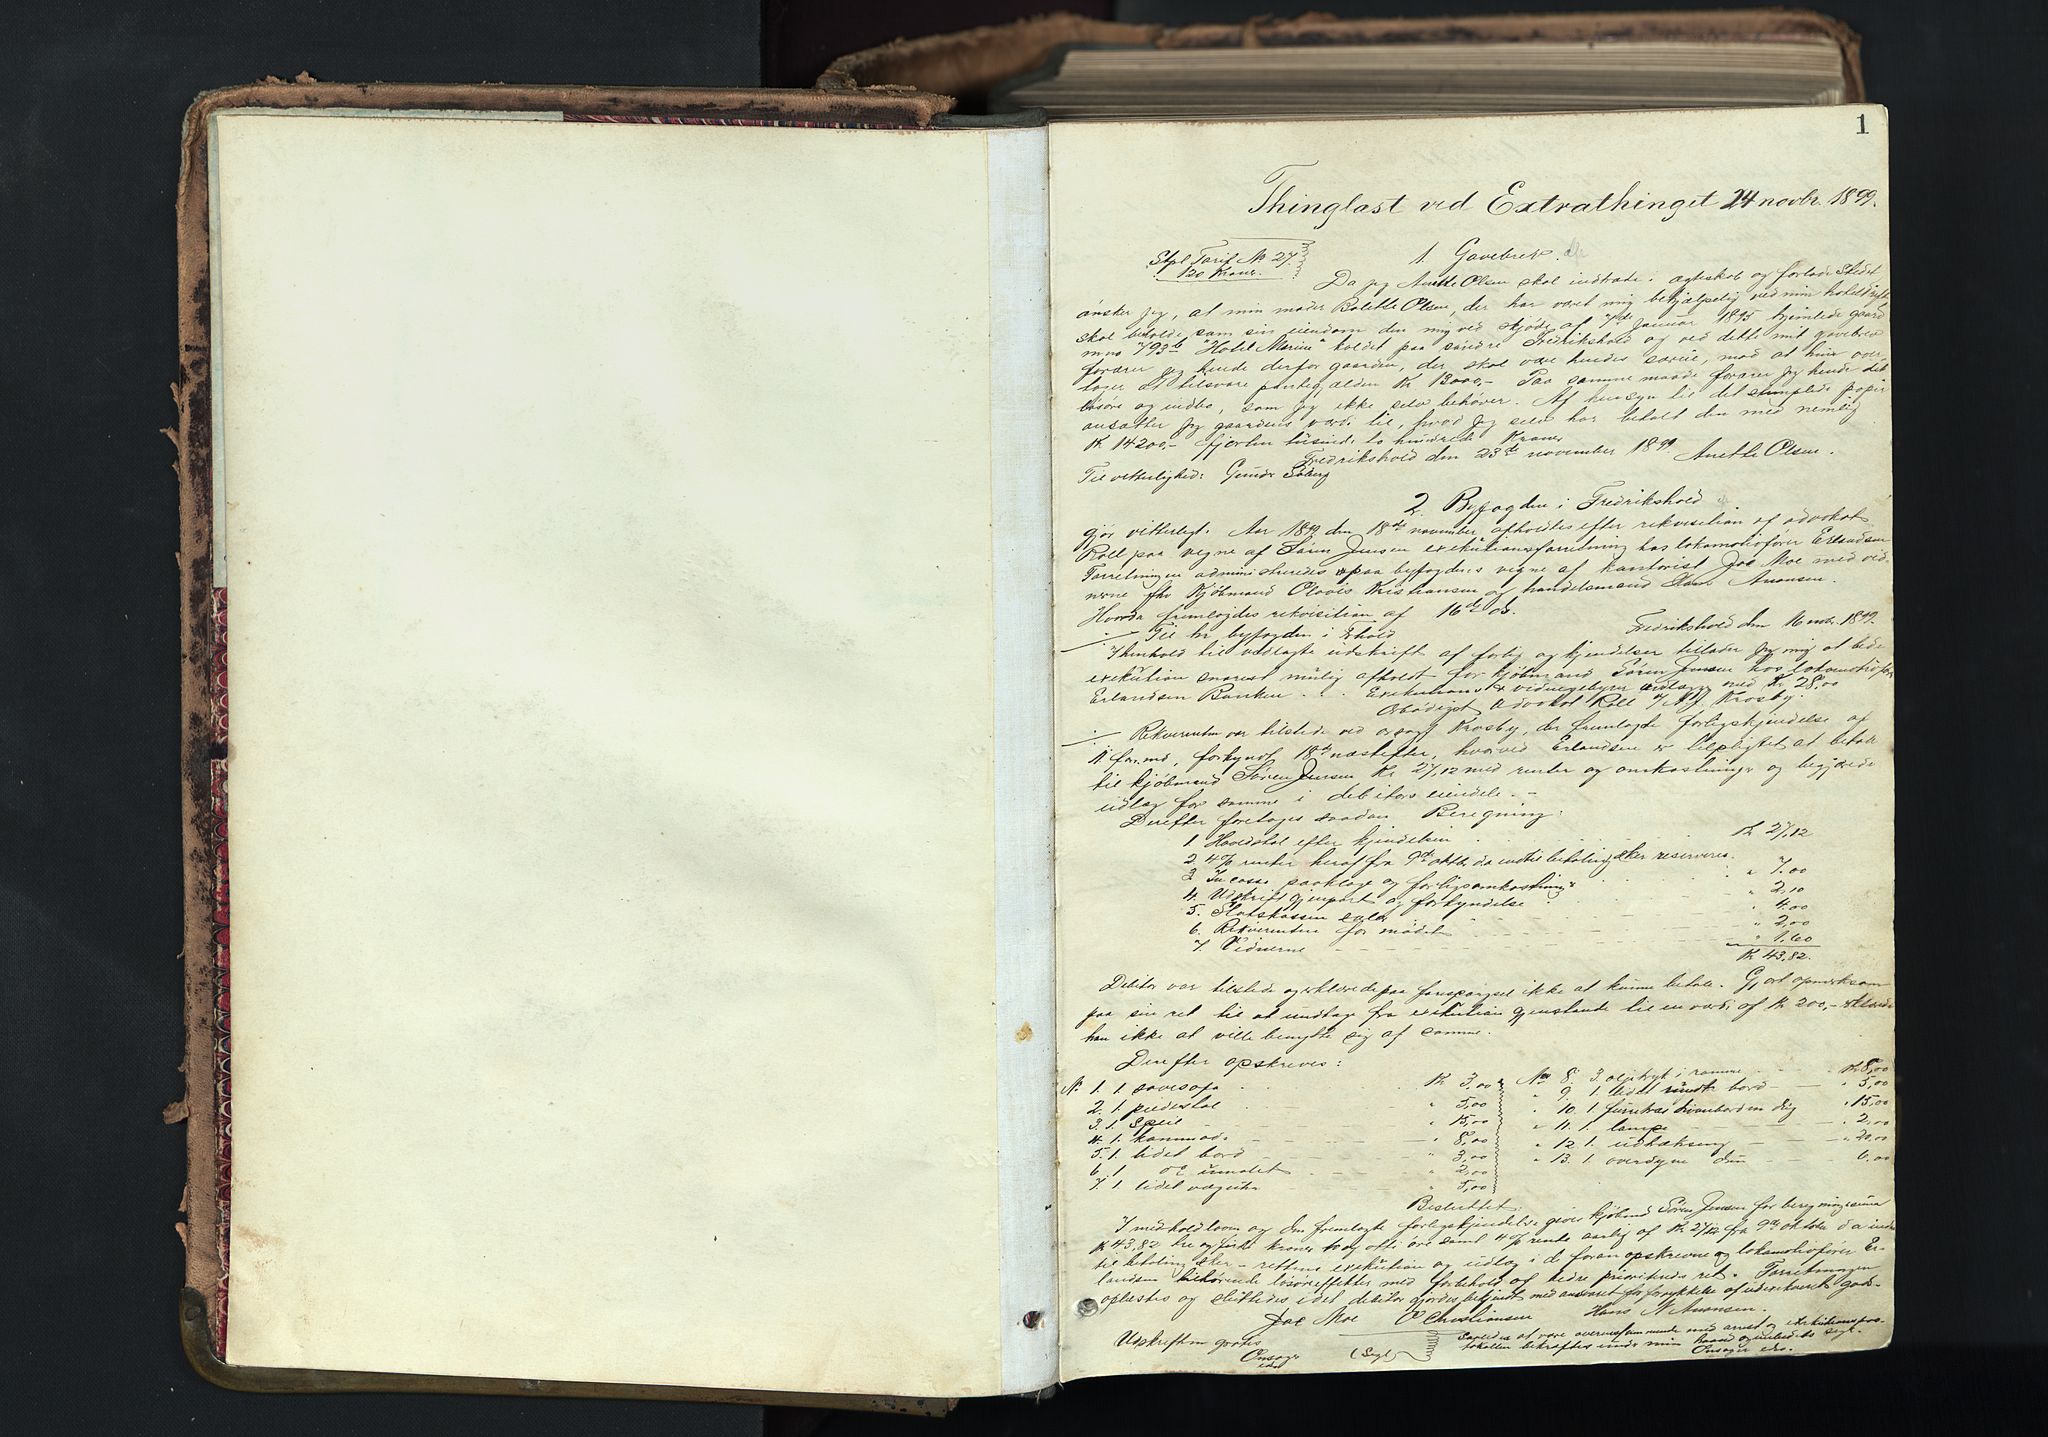 1
Thinglæst ved Extrathinget 24 novbr. 1899.
Stpl Tarif No 27.
120 Kroner.
1. Gavebrev.
Da jeg Anette Olsen skal indtræde i ægteskab og forlade Stedet
ønsker jeg, at min moder Bolette Olsen, der har været mig behjælpelig ved min
skal beholde som sin eiendom den mig ved skjøde af 7de Januar 1895 hjemlede gaard
mno 793b "Hotel Marie" kaldet paa søndre Fredrikshald og ved dette mit gavebrev
forærer jeg hende derfor gaarden, der skal være hendes særeie, mod at hun over-
tager at tilsvare pantegjælden Kr 13000,- Paa samme maade forærer jeg hende det
løsøre og indbo, som jeg ikke selv behøver. Af hensyn til det stemplede papir
ansætter jeg gaardens værdi til, hvad jeg selv har betalt den med nemlig
Kr 14200,- fjorten tusinde to hundrede Kroner
Fredrikshald den 23de november 1899. Anette Olsen.
Til vitterlighed: Søberg
2. Byfogden i Fredrikshald
gjør vitterligt: Aar 1899 den 18de november afholdtes efter rekvisition af advokat
Roll paa vegne af Søren Jensen exekutionsforretning hos lokomotivfører Erlandsen
Forretningen administreredes paa byfogdens vegne af kontorist Joc Moe med vid-
nerne fhv Kjøbmand Olavis Kristiansen og handelsmand Hans Amonsen.
Hvorda fremlagdes rekvisition af 16de ds.
Til hr byfogden i Fhald
Fredrikshald den 16 nvbr. 1899.
I henhold til vedlagte udskrift af forlig og kjendelser tillader jeg mig at bede
exekution snarest mulig afholdt for kjøbmand Søren Jensen hos lokomotivfører
Erlandsen Banken . . . Exekutions & vidnegebyrer vedlægges med Kr 28,00
Ærbødigst Advokat Roll Krosby.
Rekvirenten var tilstede ved Krosby, der fremlagde forligskjendelse af
forkyndt 18de næstefter, hvorved Erlandsen er tilpligtet at betale
til kjøbmand Søren Jensen Kr 27,12 med renter og omkostninger og begjærede
udlæg for samme i debitors eiendele. -
Derefter foretoges saadan Beregning:
1. Hovedstol efter kjendelsen . Kr 27,12
2. 4% renter heraf fra 9de oktb. da indtil betaling sker reserveres.
3 Incasso paaklage og forligsomkostninger . . " 7.00
4. Udskrift gjenpart og forkyndelse . . " 2,10
5. Statskassen - - - " 4.00
6. Rekvirenten for mødet - - - " 2,00
7. Vidnerne - - - " 1,60
Kr 43,82.
Debitor var tilstede og erklærede paa forespørgsel ikke at kunne betale. Gjort opmærksom
paa sin ret til at undtage fra exekution gjenstande til en værdi af Kr 200,- erklærede
han ikke at ville benytte sig af samme.
Derefter opskreves:
No 1. 1 sovesofa . . Kr 3,00
2. 1. piedestal . . " 5,00
3. 1. speil . . " 15,00
4. 1. kommode " 8,00
5. 1 lidet bord " 3,00
6. 1 do umalet " 2,00
7. 1 lidet vægur " 5,00
No 8. 3 oljetryk i ramme Kr 8,00
" 9. 1. lidet rundt bord " 5,00
" 10. 1. " 15,00
" 11. 1 lampe " 2,00
" 12 1. " 20,00
" 13. 1. overdyne " 6,00
Besluttet
I medhold loven og den fremlagte forligskjendelse gives kjøbmd Søren Jensen for beregningssum
Kr 43,82 tre og firti kroner to og otti øre samt 4% rente aarlig af Kr 27,12 fra 9de oktober da indtil
til betaling sker - rettens exekution og udlæg i de foran opskrevne og lokomotivfører Er-
landsen tilhørende løsøreeffekter med forbehold af bedre prioriterede ret. Forretningen
oplæstes og sluttedes idet debitor gjordes bekjendt med ansvaret for forrykkelse af udexekveret gods.-
Joc Moe O Christiansen Hans N Amonsen.
Udskriften gratis
Onsager
(Segl)
Saaledes at være overensstemmende med arrest og exekutionspro-
tokollen bekræftes under min haand og embeds segl.
Onsager